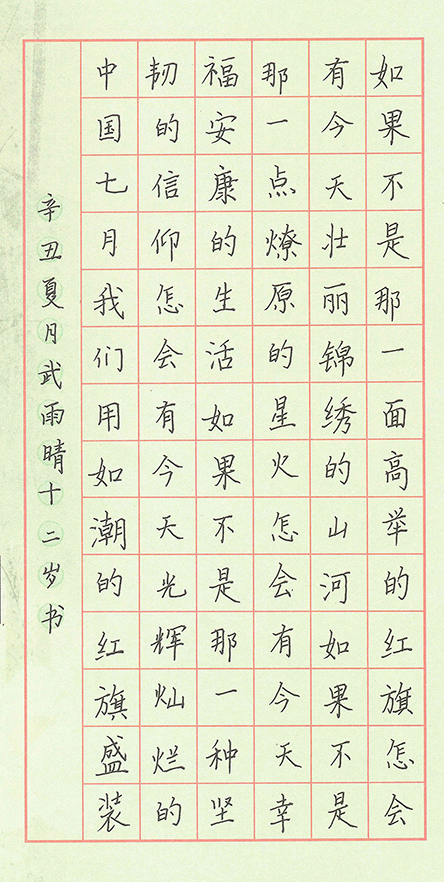 如果不是那一面高举的红旗怎会
有今天壮丽锦绣的山河如果不是
那一点燎原的星火怎会有今天幸
福安康的生活如果不是那一种坚
韧的信仰怎会有今天光辉灿烂的
中国七月我们用如潮的红旗盛装
辛丑夏月武雨晴十二岁书